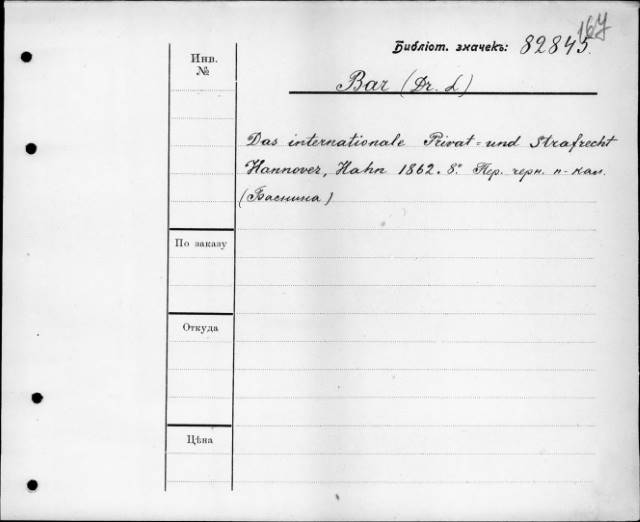 167
Библіот. значекъ: 82845.
Инв.
№
Bar (Dr. L)
Das internationale Privat= und Strafrecht
Hannover, Hahn 1862. 8º. Пер. черн. п-кал.
(Баснина)
По заказу
Откуда
Цѣна